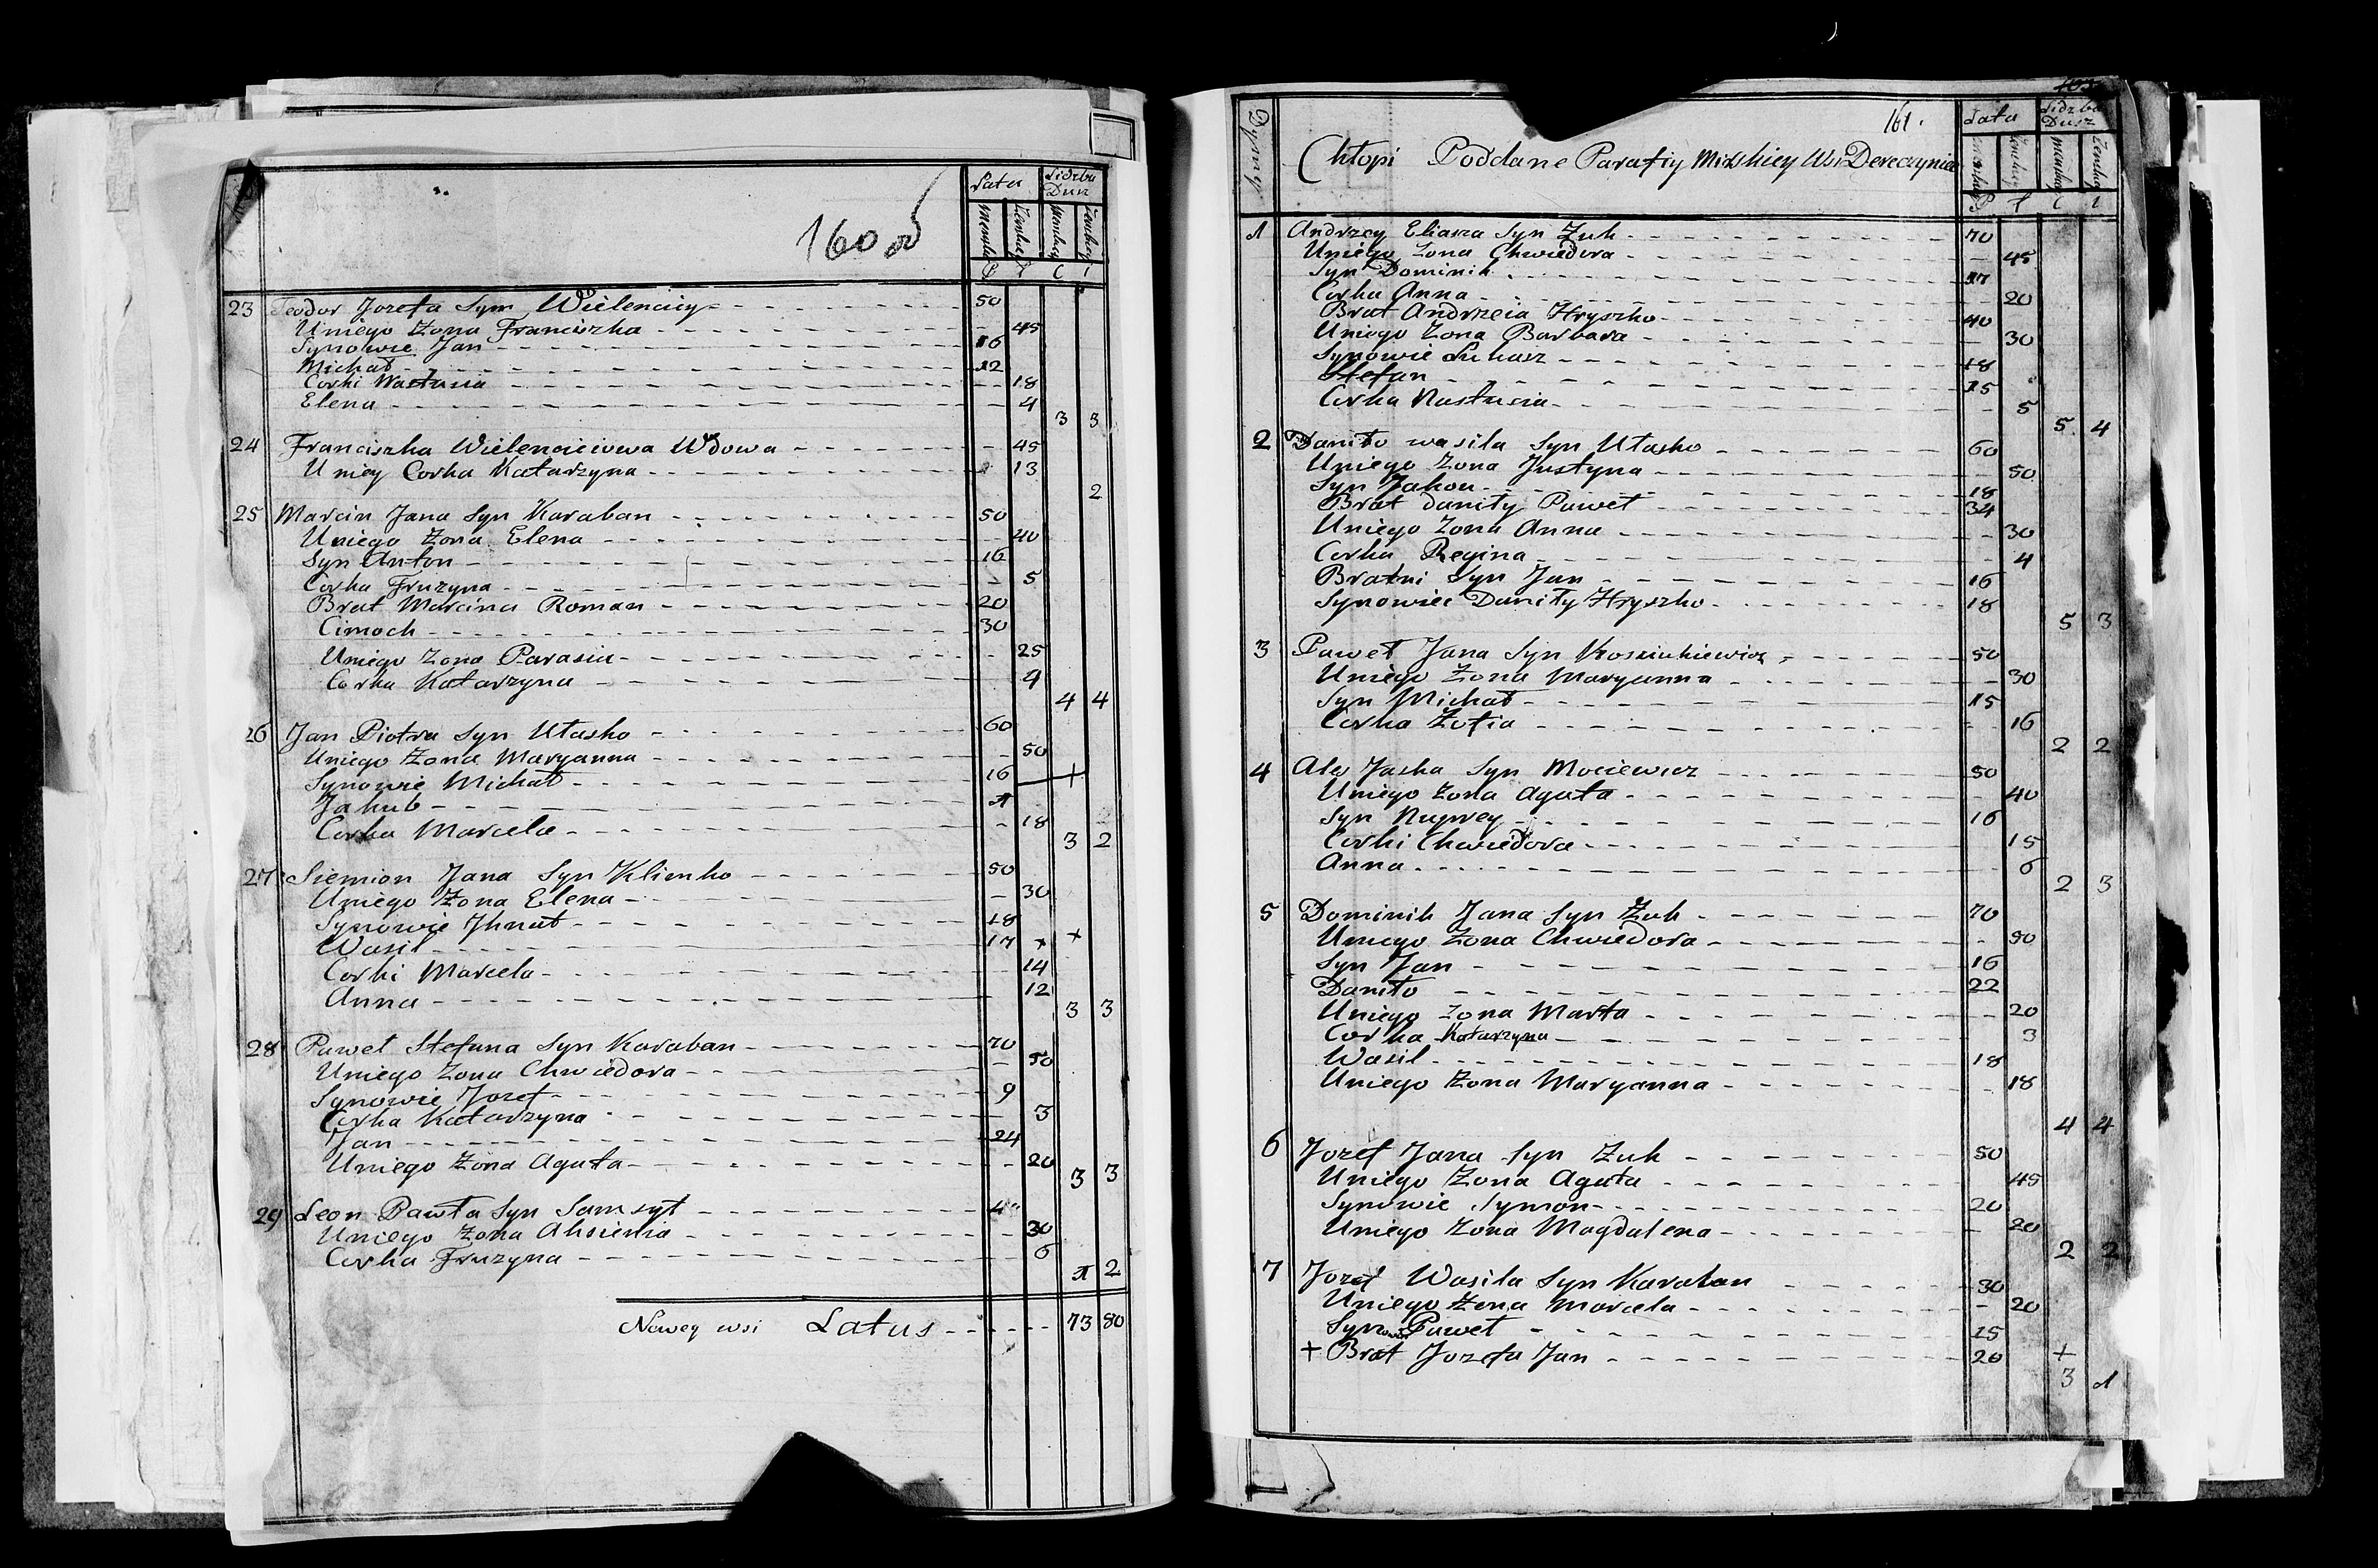 160 об
Lata Liczba Dusz
Męskiey Żenskiey Męskiey Żenskiey
23 Teodor Jozefa Syn Wielenciey 50
Uniego Żona Franciszka 45
Synowie Jan 16
Michał 12
Corki Nastusia 18
Elena 4
3 3
24 Franciszka Wielenciciowa Wdowa 45
Uniey Corka Katarzyna 13
2
25 Marcin Jana Syn Karaban 50
Uniego Żona Elena 40
Syn Anton 16
Corka Fruzyna 5
Brat Marcina Roman 20
Cimoch 30
Uniego Żona Parasia 25
Corka Katarzyna 4
4 4
26 Jan Piotra Syn Utasko 60
Uniego Żona Maryanna 50
Synowie Michał 16 +
Jakub 1
Corka Marcela 18
3 2
27 Siemion Jana Syn Klimko 50
Uniego Żona Elena 30
Synowie Jhnat 18
Wasil 17 + +
Corki Marcela 14
Anna 12
3 3
28 Paweł Stefana Syn Karaban 70
Uniego Żona Chwiedora 50
Synowie Jozef 9
Corka Katarzyna 3
Jan 24
Uniego Żona Agata 20
3 3
29 Leon Pawła Syn Samsyt 40
Uniego Żona Aksienia 30
Corka Fruzyna 6
1 2
Nowey wsi Latus 73 80
161.
Dymy
Chłopi Poddane Parafiy Mirskiey Wsi Dereczynia
Lata Lidzba Dusz
Męskiey Żenskiey Męskiey Żenska
1 Andrzey Eliasza Syn Żuk 70
Uniego Żona Chwiedora 45
Syn Dominik 17
Corka Anna 20
Brat Andrzeia Hryszko 40
Uniego Żona Barbara 30
Synowie Lukasz 18
Stefan 15
Corka Nastusia 5
5 4
2 Daniło wasila Syn Utasko 60
Uniego Żona Justyna 50
Syn Jakou 18
Brat Daniły Paweł 34
Uniego Żona Anna 30
Corka Regina 4
Bratni Syn Jan 16
Synowiec Daniły Hryszko 18
5 3
3 Paweł Jana Syn Kosciukiewicz 50
Uniego Żona Maryanna 30
Syn Michał 15
Corka Zofia 16
2 2
4 Ale Jaska Syn Mociewicz 50
Uniego Żona Agata 40
Syn 16
Corki Chwiedora 15
Anna 6
2 3
5 Dominik Jana Syn Żuk 70
Uniego Żona Chwiedora 50
Syn Jan 16
Daniło 22
Uniego Żona Marta 20
Corka Katarzyna 3
Wasil 18
Uniego Żona Maryanna 18
4 4
6 Jozef Jana Syn Żuk 50
Uniego Żona Agata 45
Synowie Symon 20
Uniego Żona Magdalena 20
2 2
7 Jozef Wasila Syn Karaban 30
Uniego Żona Marcela 20
Synowiec Paweł 15
+ Brat Jozefa Jan 20 +
3 1